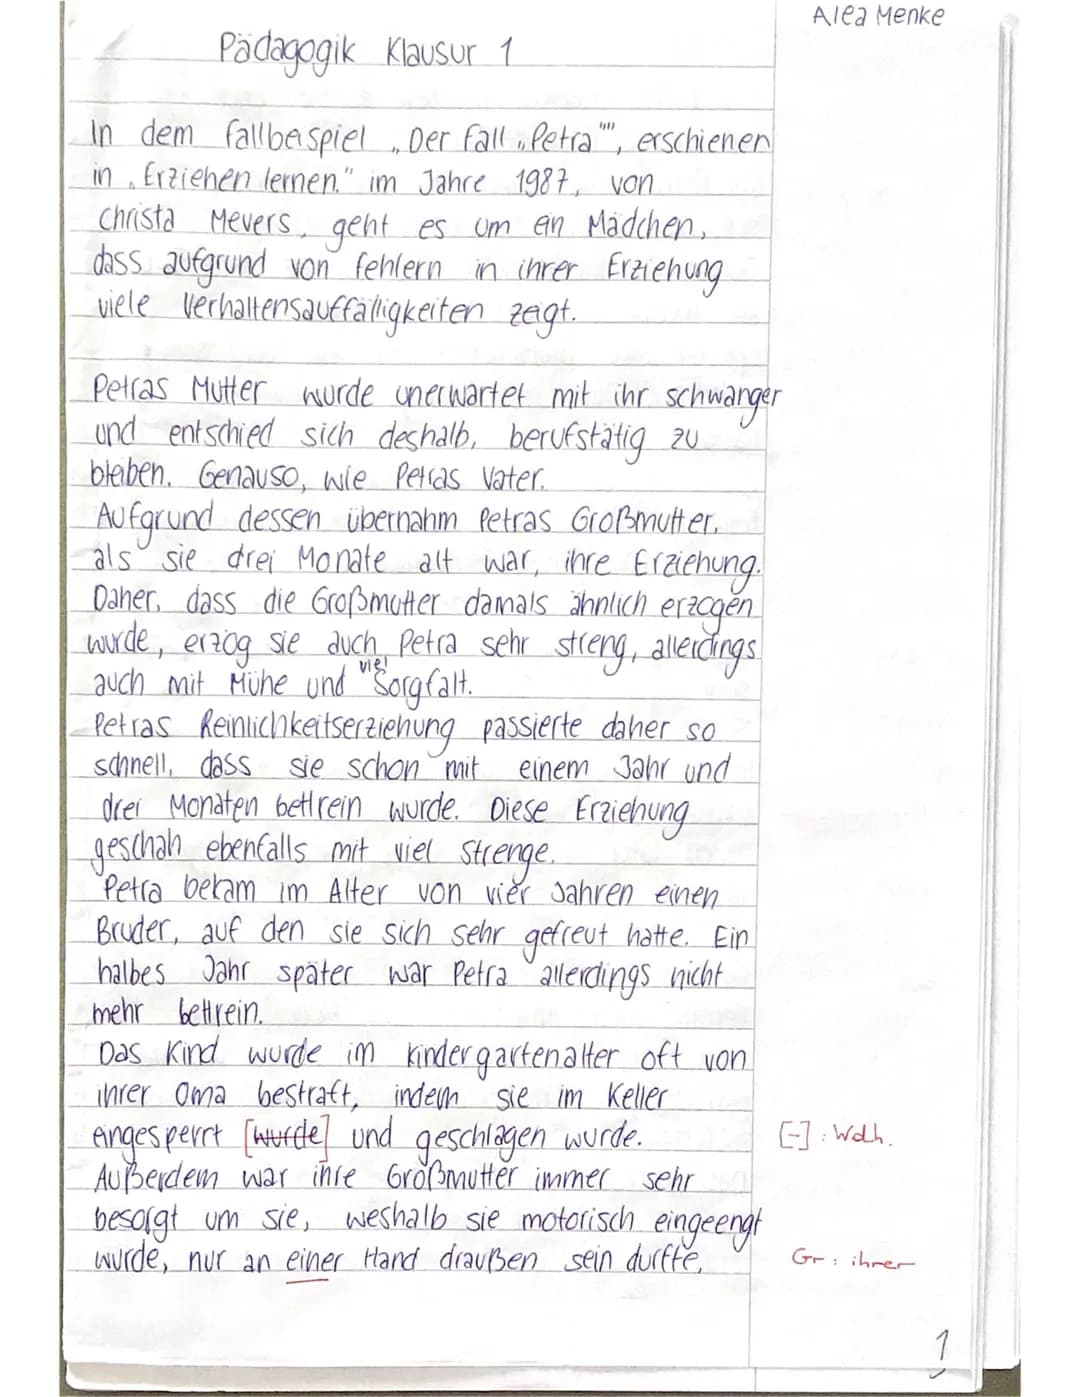 Alea Menke
Pädagogik Klausur 1
In dem Fallbeispiel „Der Fall „Petra"", erschienen
in „Erziehen lernen." im Jahre 1987, von
Christa Mevers, geht es um ein Mädchen,
dass aufgrund von Fehlern in ihrer Erziehung
viele Verhaltensauffälligkeiten zeigt.
Petras Mutter wurde unerwartet mit ihr schwanger
und entschied sich deshalb, berufstätig zu
bleiben. Genauso, wie Petras Vater.
Aufgrund dessen übernahm Petras Großmutter,
als sie drei Monate alt war, ihre Erziehung.
Daher, dass die Großmutter damals ähnlich erzogen
wurde, erzog sie auch Petra sehr streng, allerdings
auch mit Mühe und viel Sorgfalt.
Petras Reinlichkeitserziehung passierte daher so
schnell, dass sie schon mit einem Jahr und
drei Monaten bettrein wurde. Diese Erziehung
geschah ebenfalls mit viel Strenge.
Petra bekam im Alter von vier Jahren einen
Bruder, auf den sie sich sehr gefreut hatte. Ein
halbes Jahr später war Petra allerdings nicht
mehr bettrein.
Das Kind wurde im Kindergartenalter oft von
ihrer Oma bestraft, indem sie im Keller
eingesperrt [wurde] und geschlagen wurde. [-]: Wdh.
Außerdem war ihre Großmutter immer sehr
besorgt um sie, weshalb sie motorisch eingeengt
wurde, nur an einer Hand draußen sein durfte, Gr: ihrer
1